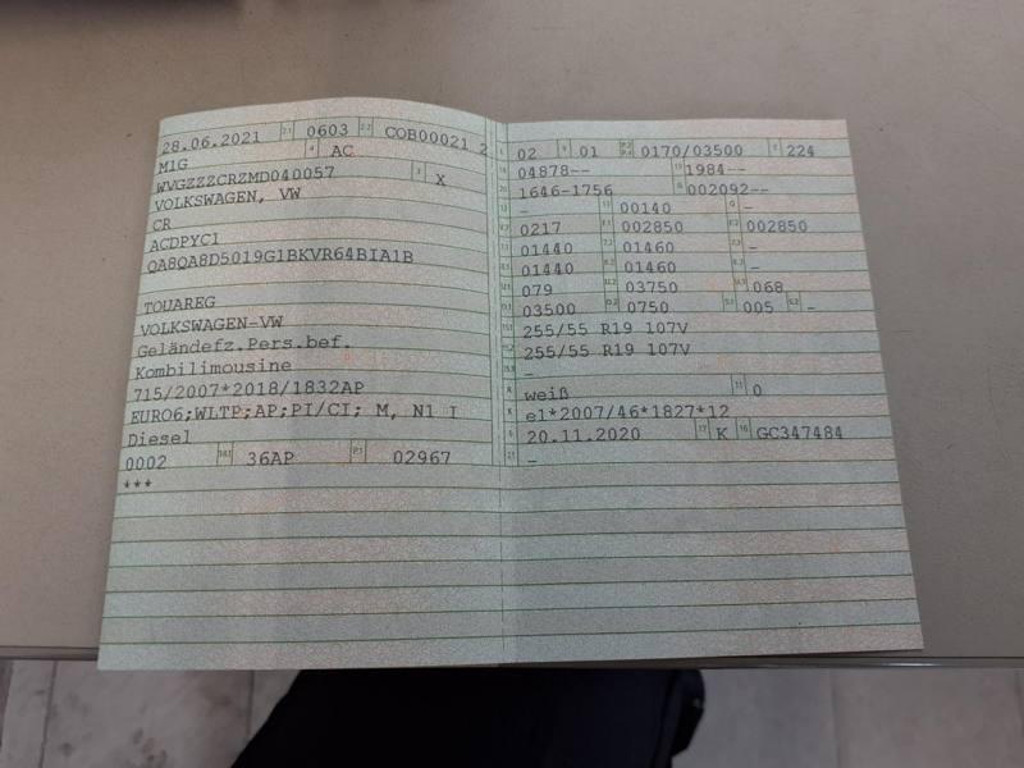 28.06.2021 2.1 0603 2.2 COB00021 2
M1G 4 AC
WVGZZZCRZMD040057 3 X
VOLKSWAGEN, VW
CR
ACDPYC1
QA8QA8D5019G1BKVR64BIA1B
TOUAREG
VOLKSWAGEN-VW
Geländefz.Pers.bef.
Kombilimousine
715/2007*2018/1832AP
EURO6;WLTP;AP;PI/CI; M, N1 I
Diesel
0002 14.1 36AP P.1 02967
***
02 9 01 0170/03500 T 224
04878-- 1984--
1646-1756 G 002092--
- 13 00140 Q -
0217 F.1 002850 F.2 002850
01440 7.2 01460 7.3 -
01440 8.2 01460 8.3 -
079 U.2 03750 U.3 068
03500 O.2 0750 S.1 005 S.2 -
15.1 255/55 R19 107V
15.2 255/55 R19 107V
15.3 -
R weiß 11 0
K e1*2007/46*1827*12
6 20.11.2020 17 K 16 GC347484
21 -